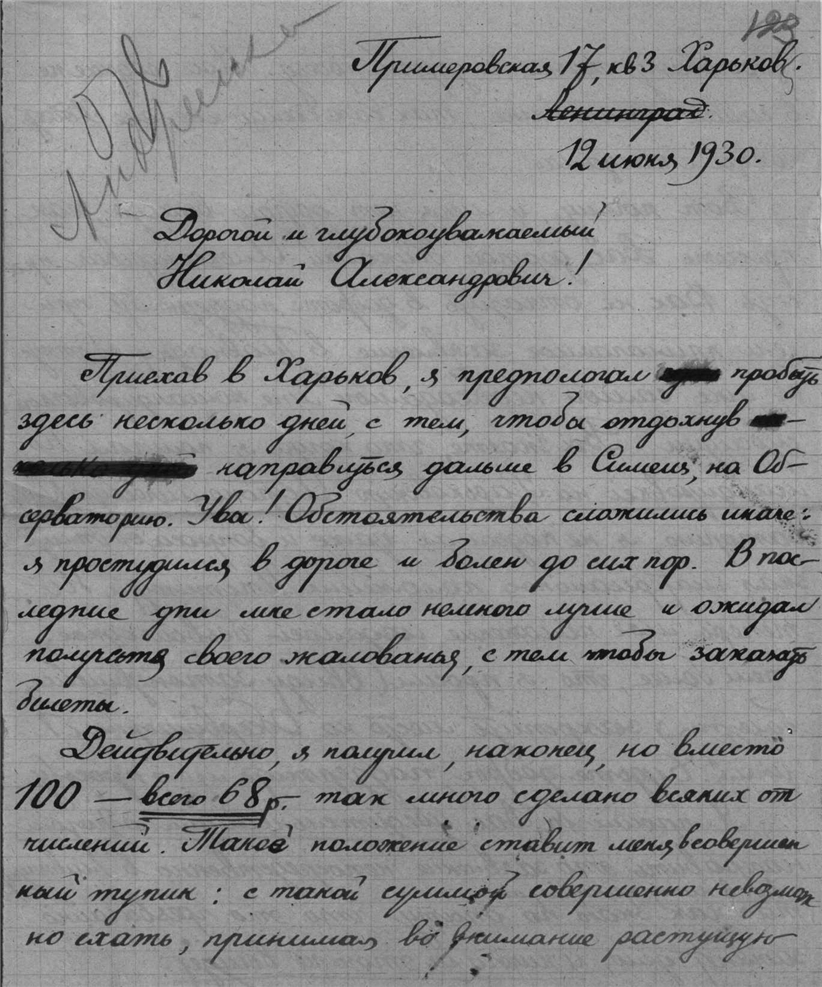 123
Примеровская 17, кв 3 Харьков.
Ленинград.
12 июня 1930.
Дорогой и глубокоуважаемый
Николай Александрович!
Приехав в Харьков, я предпологал пробыть
здесь несколько дней, с тем, чтобы отдохнув
направиться дальше в Симеиз, на Об-
серваторию. Увы! Обстоятельства сложились иначе:
я простудился в дороге и болен до сих пор. В пос-
ледние дни мне стало немного лучше и ожидал
получения своего жалованья, с тем чтобы заказать
билеты.
Действительно, я получил, наконец, но вместо
100 — всего 68 р. так много сделано всяких от
числений. Такое положение ставит меня в совершен
ный тупик: с такой суммой совершенно невозмож
но ехать, принимая во внимание растущую